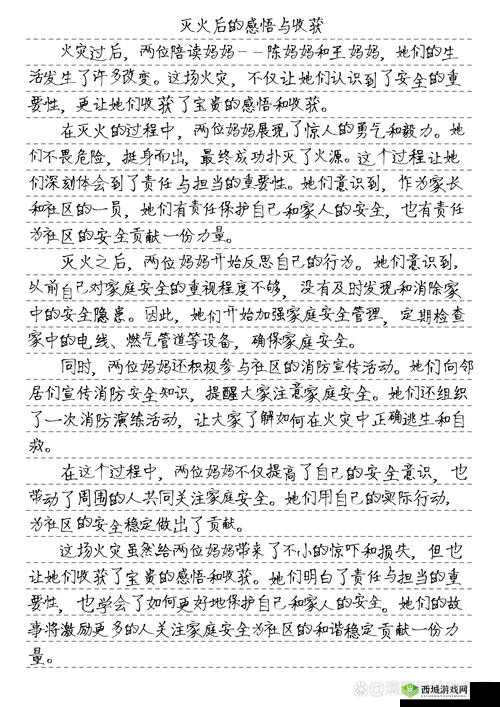 灭火后的感悟与收获
火灾过后，两位陪读妈妈--陈妈妈和王妈妈，她们的生
活发生了许多改变。这场火灾，不仅让她们认识到了安全的重
要性，更让她们收获了宝贵的感悟和收获。
在灭火的过程中，两位妈妈展现了惊人的勇气和毅力。她
们不畏危险，挺身而出，最终成功扑灭了火源。这个过程让她
们深刻体会到了责任与担当的重要性。她们意识到，作为家长
和社区的一员，她们有责任保护自己和家人的安全，也有责任
为社区的安全贡献一份力量。
灭火之后，两位妈妈开始反思自己的行为。她们意识到，
以前自己对家庭安全的重视程度不够，没有及时发现和消除家
中的安全隐患。因此，她们开始加强家庭安全管理，定期检查
家中的电线、燃气管道等设备，确保家庭安全。
同时，两位妈妈还积极参与社区的消防宣传活动。她们向邻
居们宣传消防安全知识，提醒大家注意家庭安全。她们还组织
了一次消防演练活动，让大家了解如何在火灾中正确逃生和自
救。
在这个过程中，两位妈妈不仅提高了自己的安全意识，也
带动了周围的人共同关注家庭安全。她们用自己的实际行动，
为社区的安全稳定做出了贡献。
这场火灾虽然给两位妈妈带来了不小的惊吓和损失，但也
让她们收获了宝贵的感悟和收获。她们明白了责任与担当的重
要性，也学会了如何更好地保护自己和家人的安全。她们的故
事将激励更多的人关注家庭安全为社区的和谐稳定贡献一份力
量。
西城游戏网